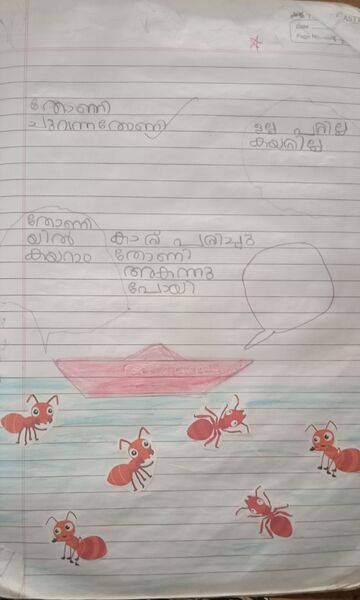 തോണി
ചുവന്നതോണി
കയറില്ല
തോണി
യിൽ
കയറാം
കാല് പതിച്ചു
തോണി
അകന്നു
പോയി
Date
Page No.